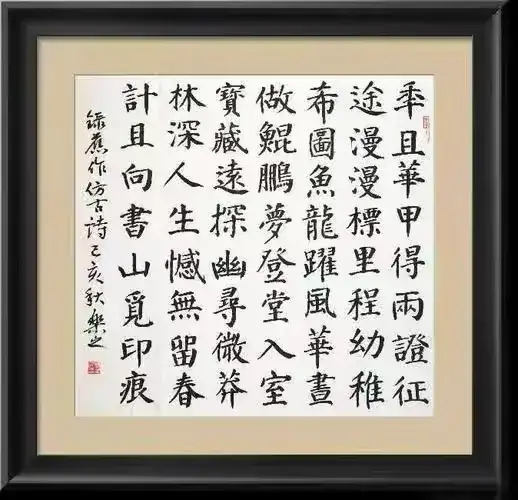 秊且華甲得兩證征
途漫漫標里程幼稚
希圖魚龍躍風華晝
做鯤鵬夢登堂入室
寶藏遠探幽尋微莽
林深人生憾無留春
計且向書山覓印痕
錄舊作仿古詩己亥秋樂之